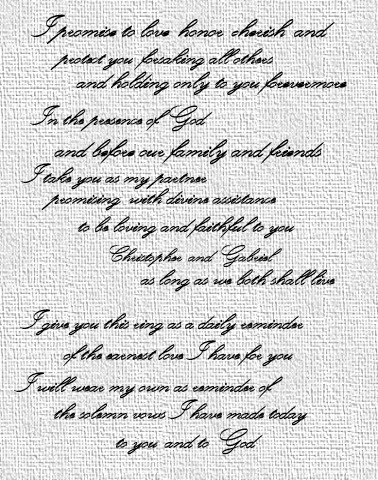 I promise to love honor cherish and
protect you forsaking all others
and holding only to you forevermore
In the presence of God
and before our family and friends
I take you as my partner
promising with divine assistance
to be loving and faithful to you
Christopher and Gabriel
as long as we both shall live
I give you this ring as a daily reminder
of the earnest love I have for you
I will wear my own as reminder of
the solemn vows I have made today
to you and to God